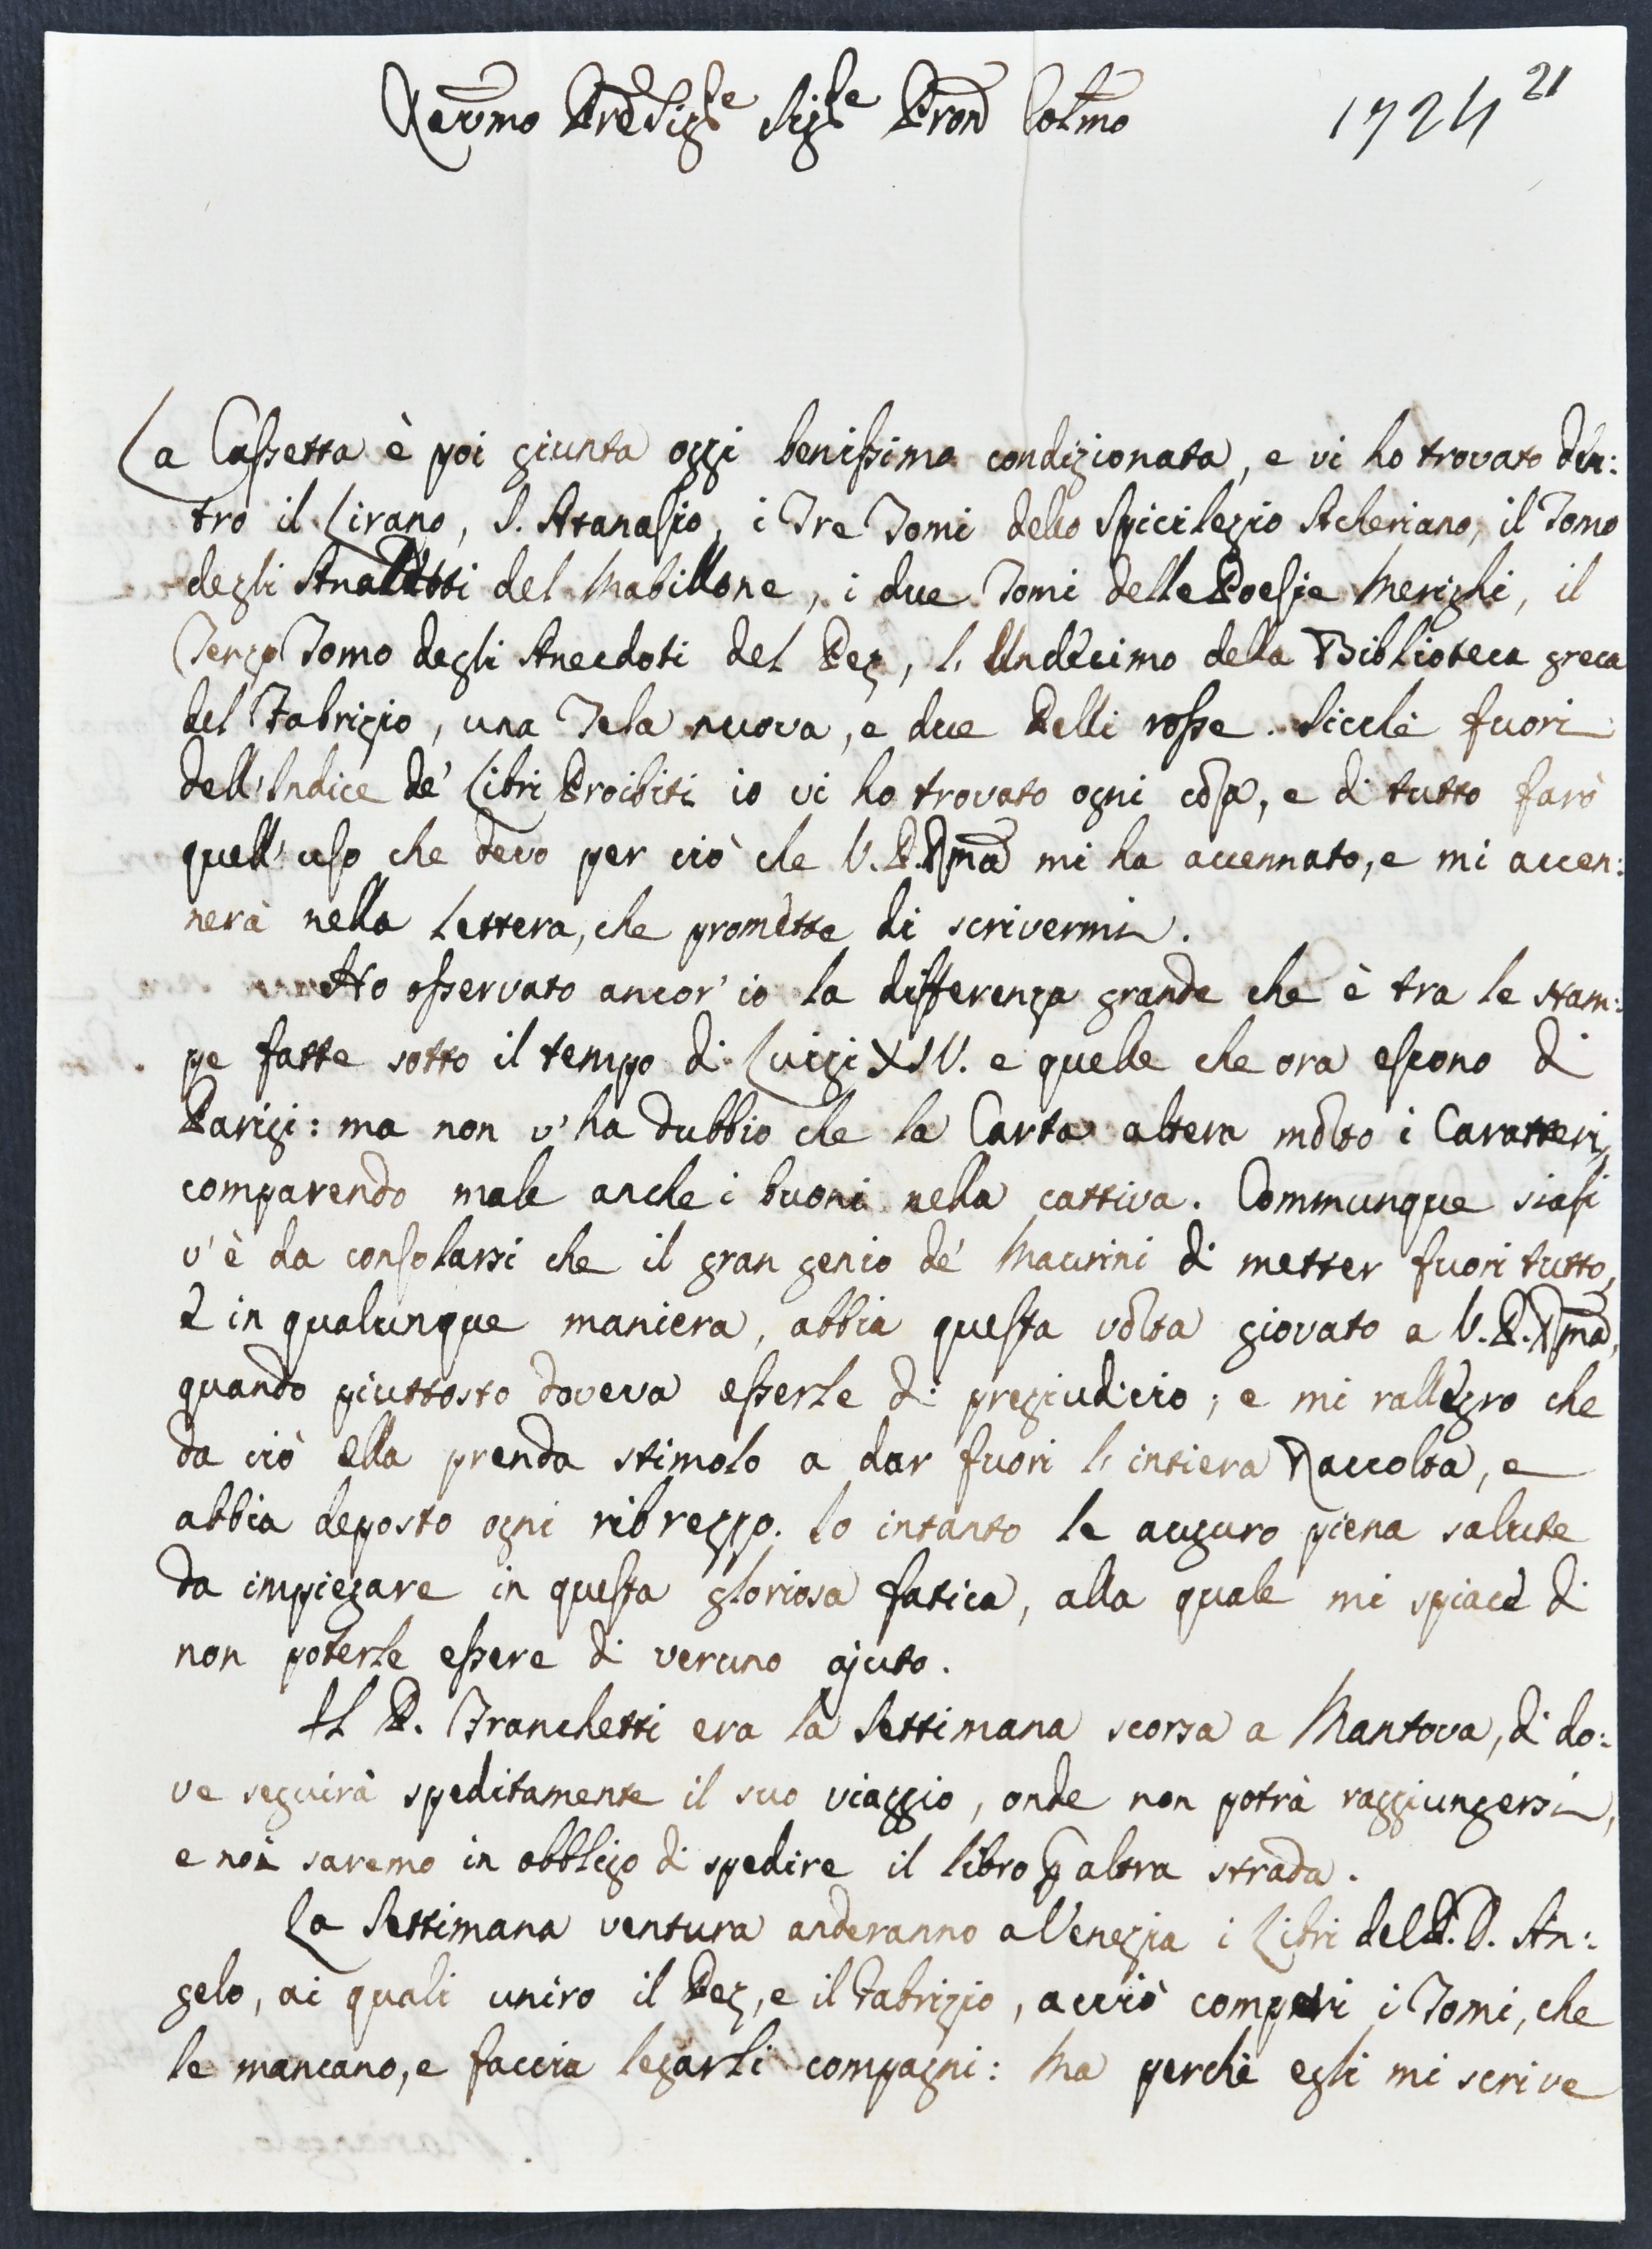 Revmo Prē Sigre Sigre Pron Colmo
1724 21
La Cassetta è poi giunta oggi benissimo condizionata, e vi ho trovato den:
tro il Lirano, S. Atanasio, i Tre Tomi dello Spicilegio Acheriano, il Tomo
degli Analetti del Mabillone, i due Tomi delle Poesie Merighi, il
Terzo Tomo degli Anecdoti del Pez, l'Undecimo della Biblioteca greca
del Fabrizio, una Tela nuova, e due Pelli rosse. Sicchè fuori
dell'Indice de' Libri Proibiti io vi ho trovato ogni cosa, e di tutto farò
quell'uso che devo per ciò che V. P. Rma mi ha accennato, e mi accen:
nerà nella lettera, che promette di scrivermi.
Ho osservato ancor' io la differenza grande che è tra le stam:
pe fatte sotto il tempo di Luigi XIV. e quelle che ora escono di
Parigi: ma non v'ha dubbio che la Carta altera molto i Caratteri,
comparendo male anche i buoni nella cattiva. Communque siasi
v'è da consolarsi che il gran genio de' Maurini di metter fuori tutto,
e in qualunque maniera, abbia questa volta giovato a V. P. Rma,
quando piuttosto doveva esserle di pregiudicio; e mi rallegro che
da ciò ella prenda stimolo a dar fuori l'intiera Raccolta, e
abbia deposto ogni ribrezzo. Io intanto le auguro piena salute
da impiegare in questa gloriosa fatica, alla quale mi spiace di
non poterle essere di veruno ajuto.
Il P. Franchetti era la Settimana scorsa a Mantova, di do:
ve seguirà speditamente il suo viaggio, onde non potrà raggiungersi,
e noi saremo in obbligo di spedire il libro p altra strada.
La Settimana ventura anderanno a Venezia i Libri del P. D. An:
gelo, ai quali uniro il Pez, e il Fabrizio, acciò comperi i Tomi, che
le mancano, e faccia legarli compagni: Ma perchè egli mi scrive